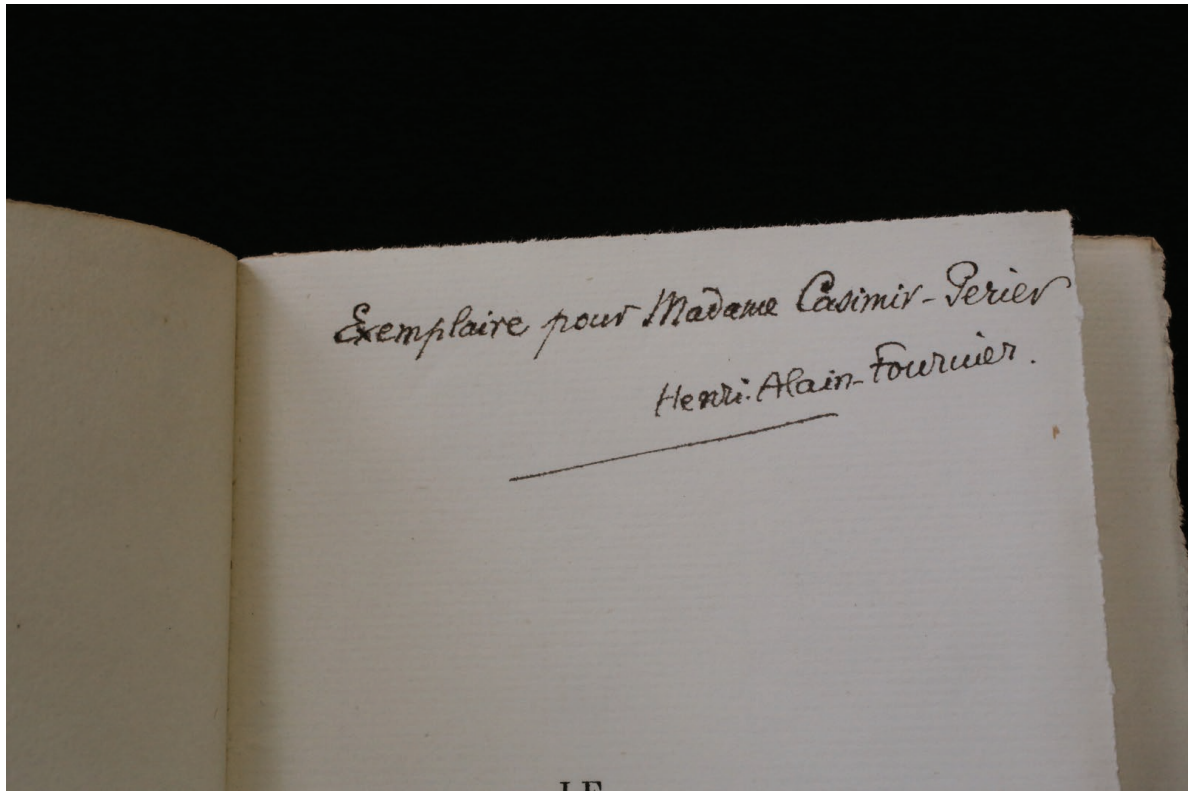 Exemplaire pour Madame Casimir-Perier
Henri-Alain-Fournier.
LE